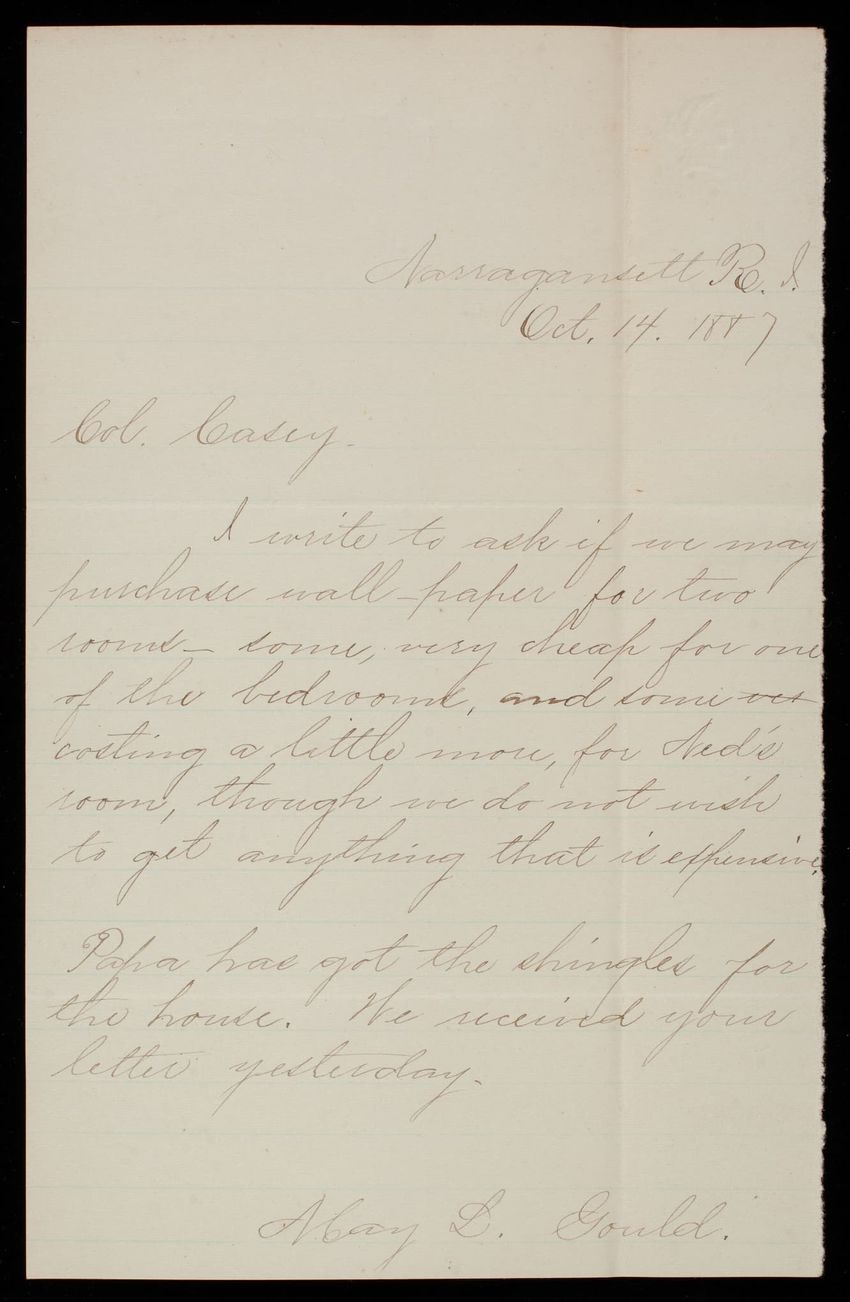 Narragansett R. I.
Oct. 14. 1887
Col. Casey.
I write to ask if we may
purchase wall-paper for two
rooms- some, very cheap for one
of the bedrooms, and some
costing a little more, for Ned's
room, though we do not wish
to get anything that is expensive.
Papa has got the shingles for
the house. We received your
letter yesterday.
May L. Gould.